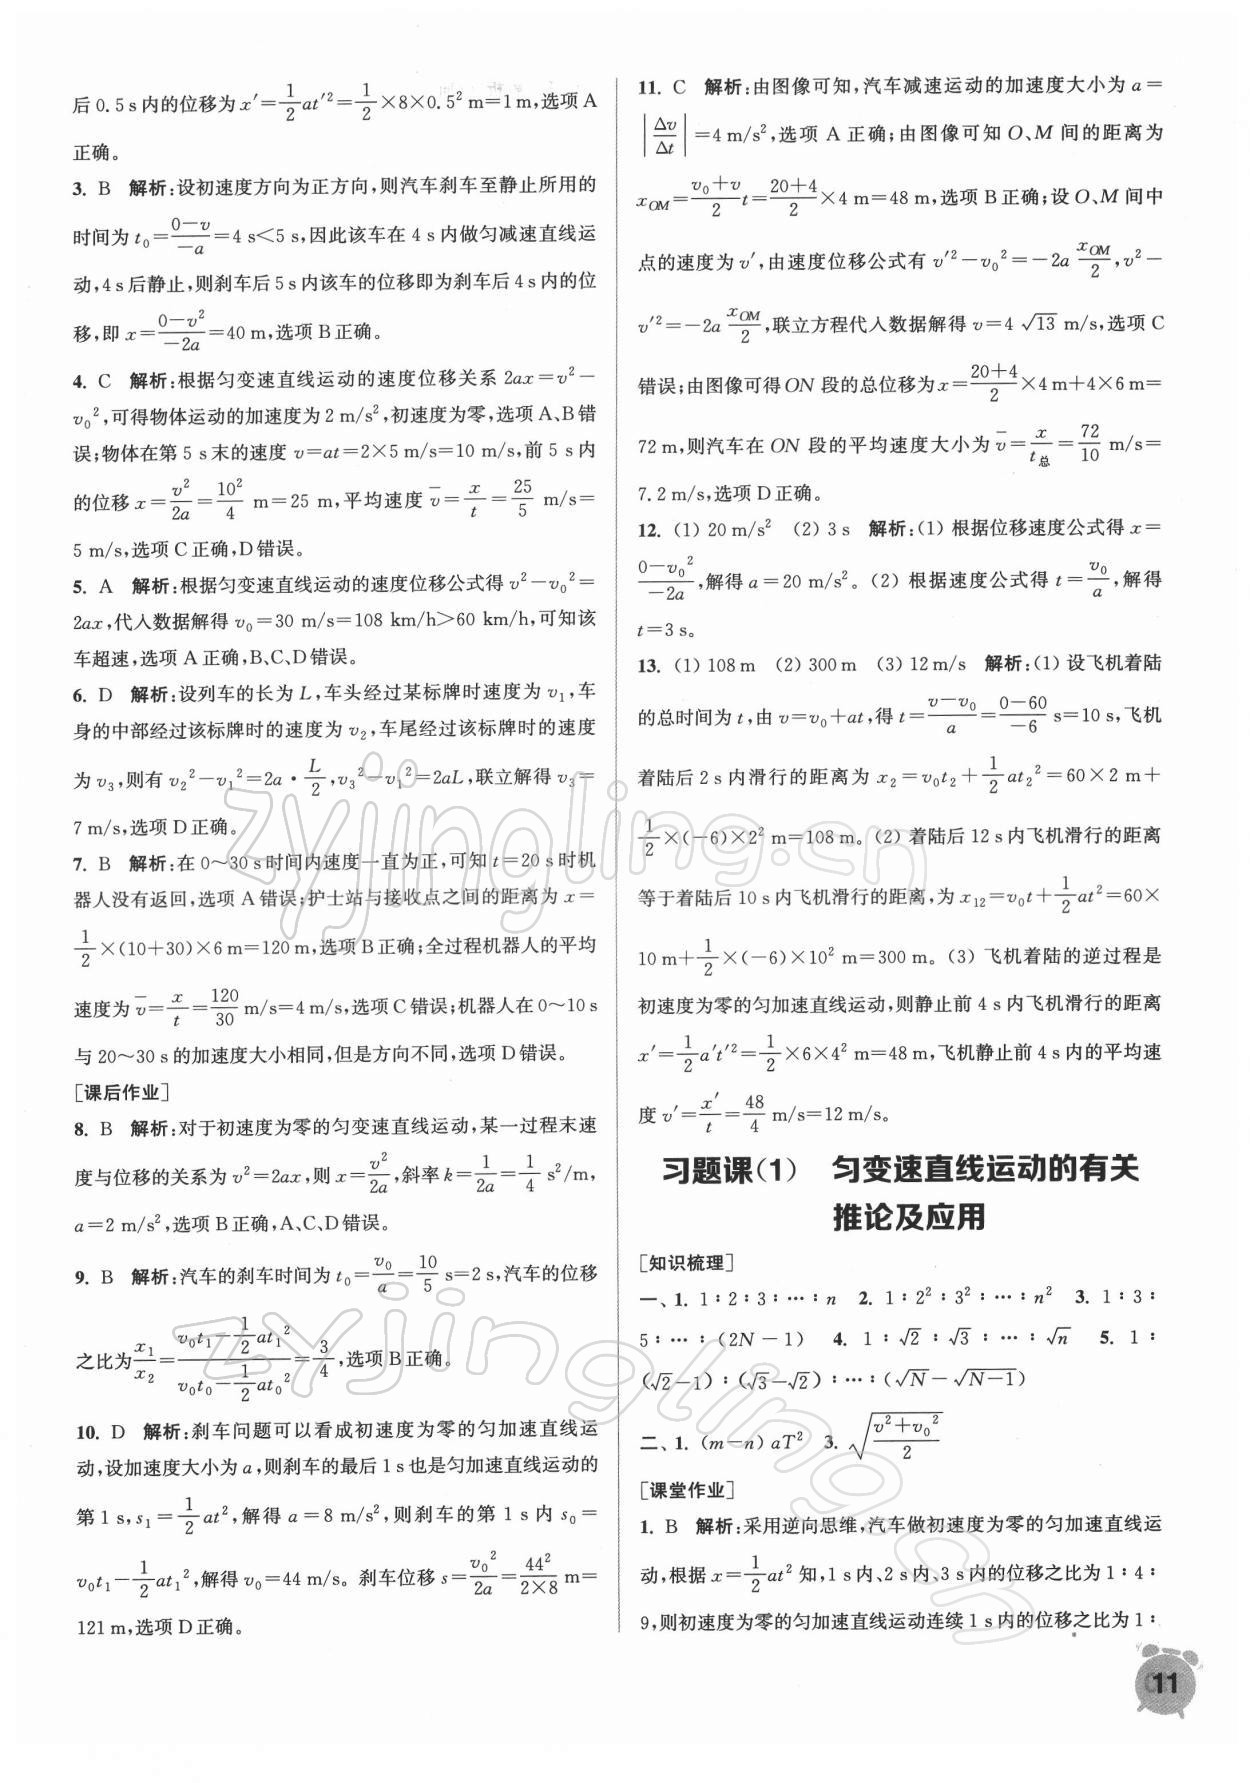 后0.5 s内的位移为x′=1/2at′²=1/2×8×0.5² m=1 m,选项A
正确。
3. B 解析:设初速度方向为正方向,则汽车刹车至静止所用的
时间为t₀=(0-v)/(-a)=4 s<5 s,因此该车在4 s内做匀减速直线运
动,4 s后静止,则刹车后5 s内该车的位移即为刹车后4 s内的位
移,即x=(0-v²)/(-2a)=40 m,选项B正确。
4. C 解析:根据匀变速直线运动的速度位移关系2ax=v²-
v₀²,可得物体运动的加速度为2 m/s²,初速度为零,选项A、B错
误;物体在第5 s末的速度v=at=2×5 m/s=10 m/s,前5 s内
的位移x=v²/2a=10²/4 m=25 m,平均速度v̄=x/t=25/5 m/s=
5 m/s,选项C正确,D错误。
5. A 解析:根据匀变速直线运动的速度位移公式得v²-v₀²=
2ax,代入数据解得v₀=30 m/s=108 km/h>60 km/h,可知该
车超速,选项A正确,B、C、D错误。
6. D 解析:设列车的长为L,车头经过某标牌时速度为v₁,车
身的中部经过该标牌时的速度为v₂,车尾经过该标牌时的速度
为v₃,则有v₂²-v₁²=2a·L/2,v₃²-v₁²=2aL,联立解得v₃=
7 m/s,选项D正确。
7. B 解析:在0~30 s时间内速度一直为正,可知t=20 s时机
器人没有返回,选项A错误;护士站与接收点之间的距离为x=
1/2×(10+30)×6 m=120 m,选项B正确;全过程机器人的平均
速度为v̄=x/t=120/30 m/s=4 m/s,选项C错误;机器人在0~10 s
与20~30 s的加速度大小相同,但是方向不同,选项D错误。
[课后作业]
8. B 解析:对于初速度为零的匀变速直线运动,某一过程末速
度与位移的关系为v²=2ax,则x=v²/2a,斜率k=1/2a=1/4 s²/m,
a=2 m/s²,选项B正确,A、C、D错误。
9. B 解析:汽车的刹车时间为t₀=v₀/a=10/5 s=2 s,汽车的位移
之比为x₁/x₂=(v₀t₁-1/2at₁²)/(v₀t₀-1/2at₀²)=3/4,选项B正确。
10. D 解析:刹车问题可以看成初速度为零的匀加速直线运
动,设加速度大小为a,则刹车的最后1 s也是匀加速直线运动的
第1 s,s₁=1/2at²,解得a=8 m/s²,则刹车的第1 s内s₀=
v₀t₁-1/2at₁²,解得v₀=44 m/s。刹车位移s=v₀²/2a=44²/(2×8) m=
121 m,选项D正确。
11. C 解析:由图像可知,汽车减速运动的加速度大小为a=
|Δv/Δt|=4 m/s²,选项A正确;由图像可知O、M间的距离为
x_OM=(v₀+v)/2 t=(20+4)/2×4 m=48 m,选项B正确;设O、M间中
点的速度为v′,由速度位移公式有v′²-v₀²=-2a x_OM/2,v²-
v′²=-2a x_OM/2,联立方程代入数据解得v=4√13 m/s,选项C
错误;由图像可得ON段的总位移为x=(20+4)/2×4 m+4×6 m=
72 m,则汽车在ON段的平均速度大小为v̄=x/t总=72/10 m/s=
7.2 m/s,选项D正确。
12. (1) 20 m/s² (2) 3 s 解析:(1) 根据位移速度公式得x=
(0-v₀²)/(-2a),解得a=20 m/s²。(2) 根据速度公式得t=v₀/a,解得
t=3 s。
13. (1) 108 m (2) 300 m (3) 12 m/s 解析:(1) 设飞机着陆
的总时间为t,由v=v₀+at,得t=(v-v₀)/a=(0-60)/(-6) s=10 s,飞机
着陆后2 s内滑行的距离为x₂=v₀t₂+1/2at₂²=60×2 m+
1/2×(-6)×2² m=108 m。(2) 着陆后12 s内飞机滑行的距离
等于着陆后10 s内飞机滑行的距离,为x₁₂=v₀t+1/2at²=60×
10 m+1/2×(-6)×10² m=300 m。(3) 飞机着陆的逆过程是
初速度为零的匀加速直线运动,则静止前4 s内飞机滑行的距离
x′=1/2a′t′²=1/2×6×4² m=48 m,飞机静止前4 s内的平均速
度v′=x′/t=48/4 m/s=12 m/s。
习题课(1) 匀变速直线运动的有关
推论及应用
[知识梳理]
一、1. 1∶2∶3∶…∶n 2. 1∶2²∶3²∶…∶n² 3. 1∶3∶
5∶…∶(2N-1) 4. 1∶√2∶√3∶…∶√n 5. 1∶
(√2-1)∶(√3-√2)∶…∶(√N-√(N-1))
二、1. (m-n)aT² 3. √((v²+v₀²)/2)
[课堂作业]
1. B 解析:采用逆向思维,汽车做初速度为零的匀加速直线运
动,根据x=1/2at²知,1 s内、2 s内、3 s内的位移之比为1∶4∶
9,则初速度为零的匀加速直线运动连续1 s内的位移之比为1∶
11
zyjingling.cn
zyjingling.cn